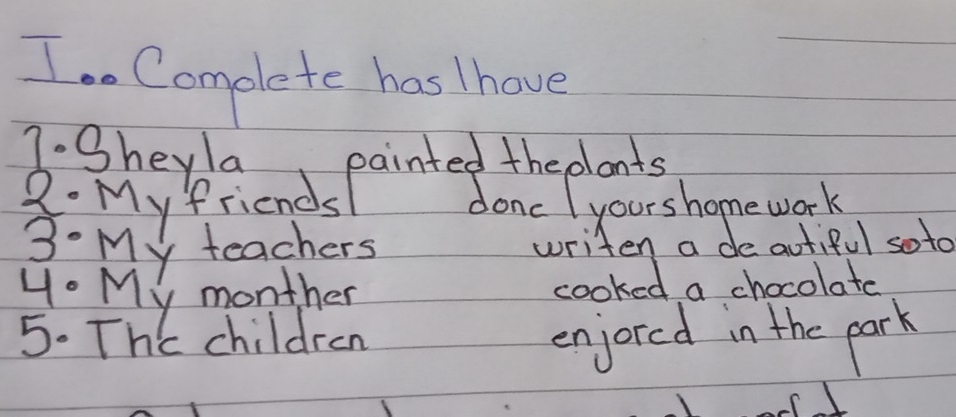 I.. Complete has/have
1. Sheyla painted the plants
2. My friends done yours home work
3. My teachers writen a de autiful soto
4. My monther cooked a chocolate
5. The children enjored in the park